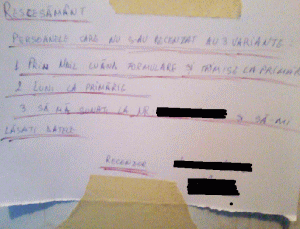 RECESĂMÂNT
PERSOANELE CARE NU S-AU RECENZAT AU 3 VARIANTE:
1 PRIN MAIL FORMULARE ȘI TRIMISE LA PRIMĂRIE
2 LUNI LA PRIMĂRIE
3 SĂ MĂ SUNAȚI LA NR ȘI SĂ MI
LĂSAȚI DATELE
RECENZOR